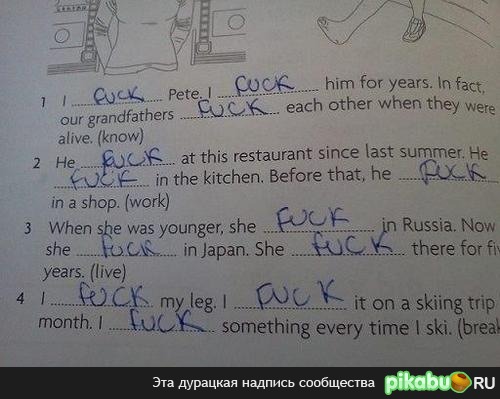 1 I FUCK Pete. I FUCK him for years. In fact,
our grandfathers FUCK each other when they were
alive. (know)
2 He FUCK at this restaurant since last summer. He
FUCK in the kitchen. Before that, he FUCK
in a shop. (work)
3 When she was younger, she FUCK in Russia. Now
she FUCK in Japan. She FUCK there for fi
years. (live)
4 I FUCK my leg. I FUCK it on a skiing trip
month. I FUCK something every time I ski. (brea
Эта дурацкая надпись сообщества pikabu.RU